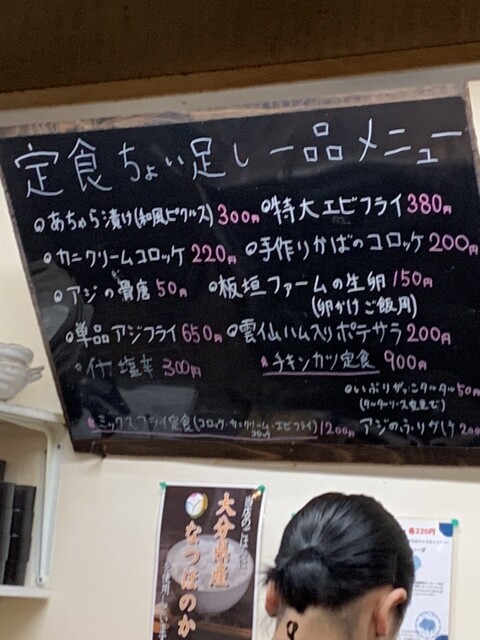 定食ちょい足し一品メニュー
あちゃら漬け(和風ピクルス)300円
特大エビフライ380円
カニクリームコロッケ 220円
手作りかぼのコロッケ200円
アジの骨唐50円
板垣ファームの生卵150円
(卵かけご飯用)
単品アジフライ650円
雲仙ハム入りポテサラ200円
塩辛 300円
チキンカツ定食 900円
いぶりがっこタルタル50円
ミックスフライ定食(コロッケ・カニクリームコロッケ・エビフライ)1200円
アジのふりかけ200
当店のごはんは
大分県産
なつほのか
を使用
各320円